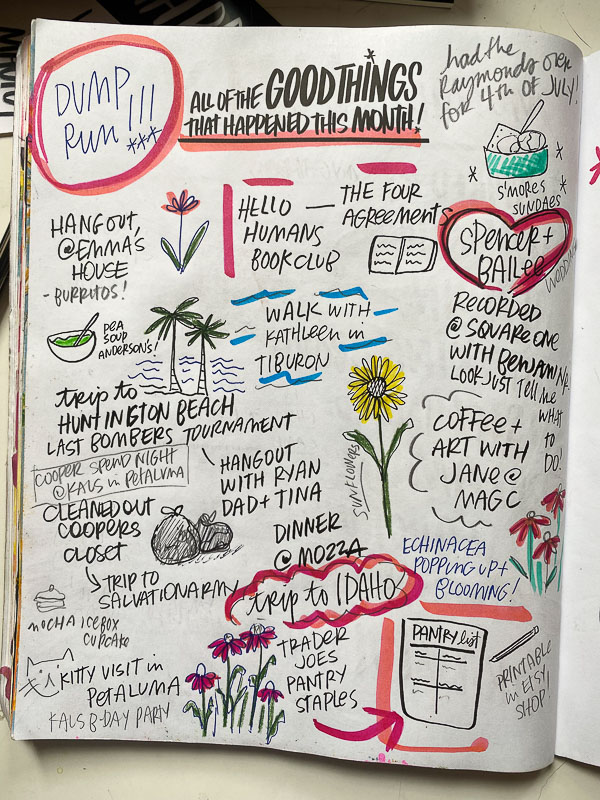 DUMP
RUN!!!
ALL OF THE GOOD THINGS
THAT HAPPENED THIS MONTH!
had the
Raymonds over
for 4th of JULY!
S'MORES
SUNDAES
HANGOUT,
@EMMA'S
HOUSE
- BURRITOS!
HELLO
HUMANS
BOOKCLUB
— THE FOUR
AGREEMENTS
SPENCER +
BAILEE
WEDDING
PEA
SOUP
ANDERSON'S!
WALK WITH
KATHLEEN in
TIBURON
RECORDED
@ SQUARE ONE
WITH BENJAMIN
LOOK JUST TELL ME
WHAT
TO
DO!
trip to
HUNTINGTON BEACH
LAST BOMBERS TOURNAMENT
COOPER SPEND NIGHT
@KALS in PETALUMA
HANGOUT
WITH RYAN
DAD + TINA
SUNFLOWERS
COFFEE +
ART WITH
JANE @
MAGC
CLEANED OUT
COOPERS
CLOSET
TRIP TO
SALVATION ARMY
DINNER
@ MOZZA
ECHINACEA
POPPING UP +
BLOOMING!
trip to IDAHO
MOCHA ICEBOX
CUPCAKE
KITTY VISIT in
PETALUMA
KALS B-DAY PARTY
TRADER
JOES
PANTRY
STAPLES
PANTRY list
PRINTABLE
in ETSY
SHOP!